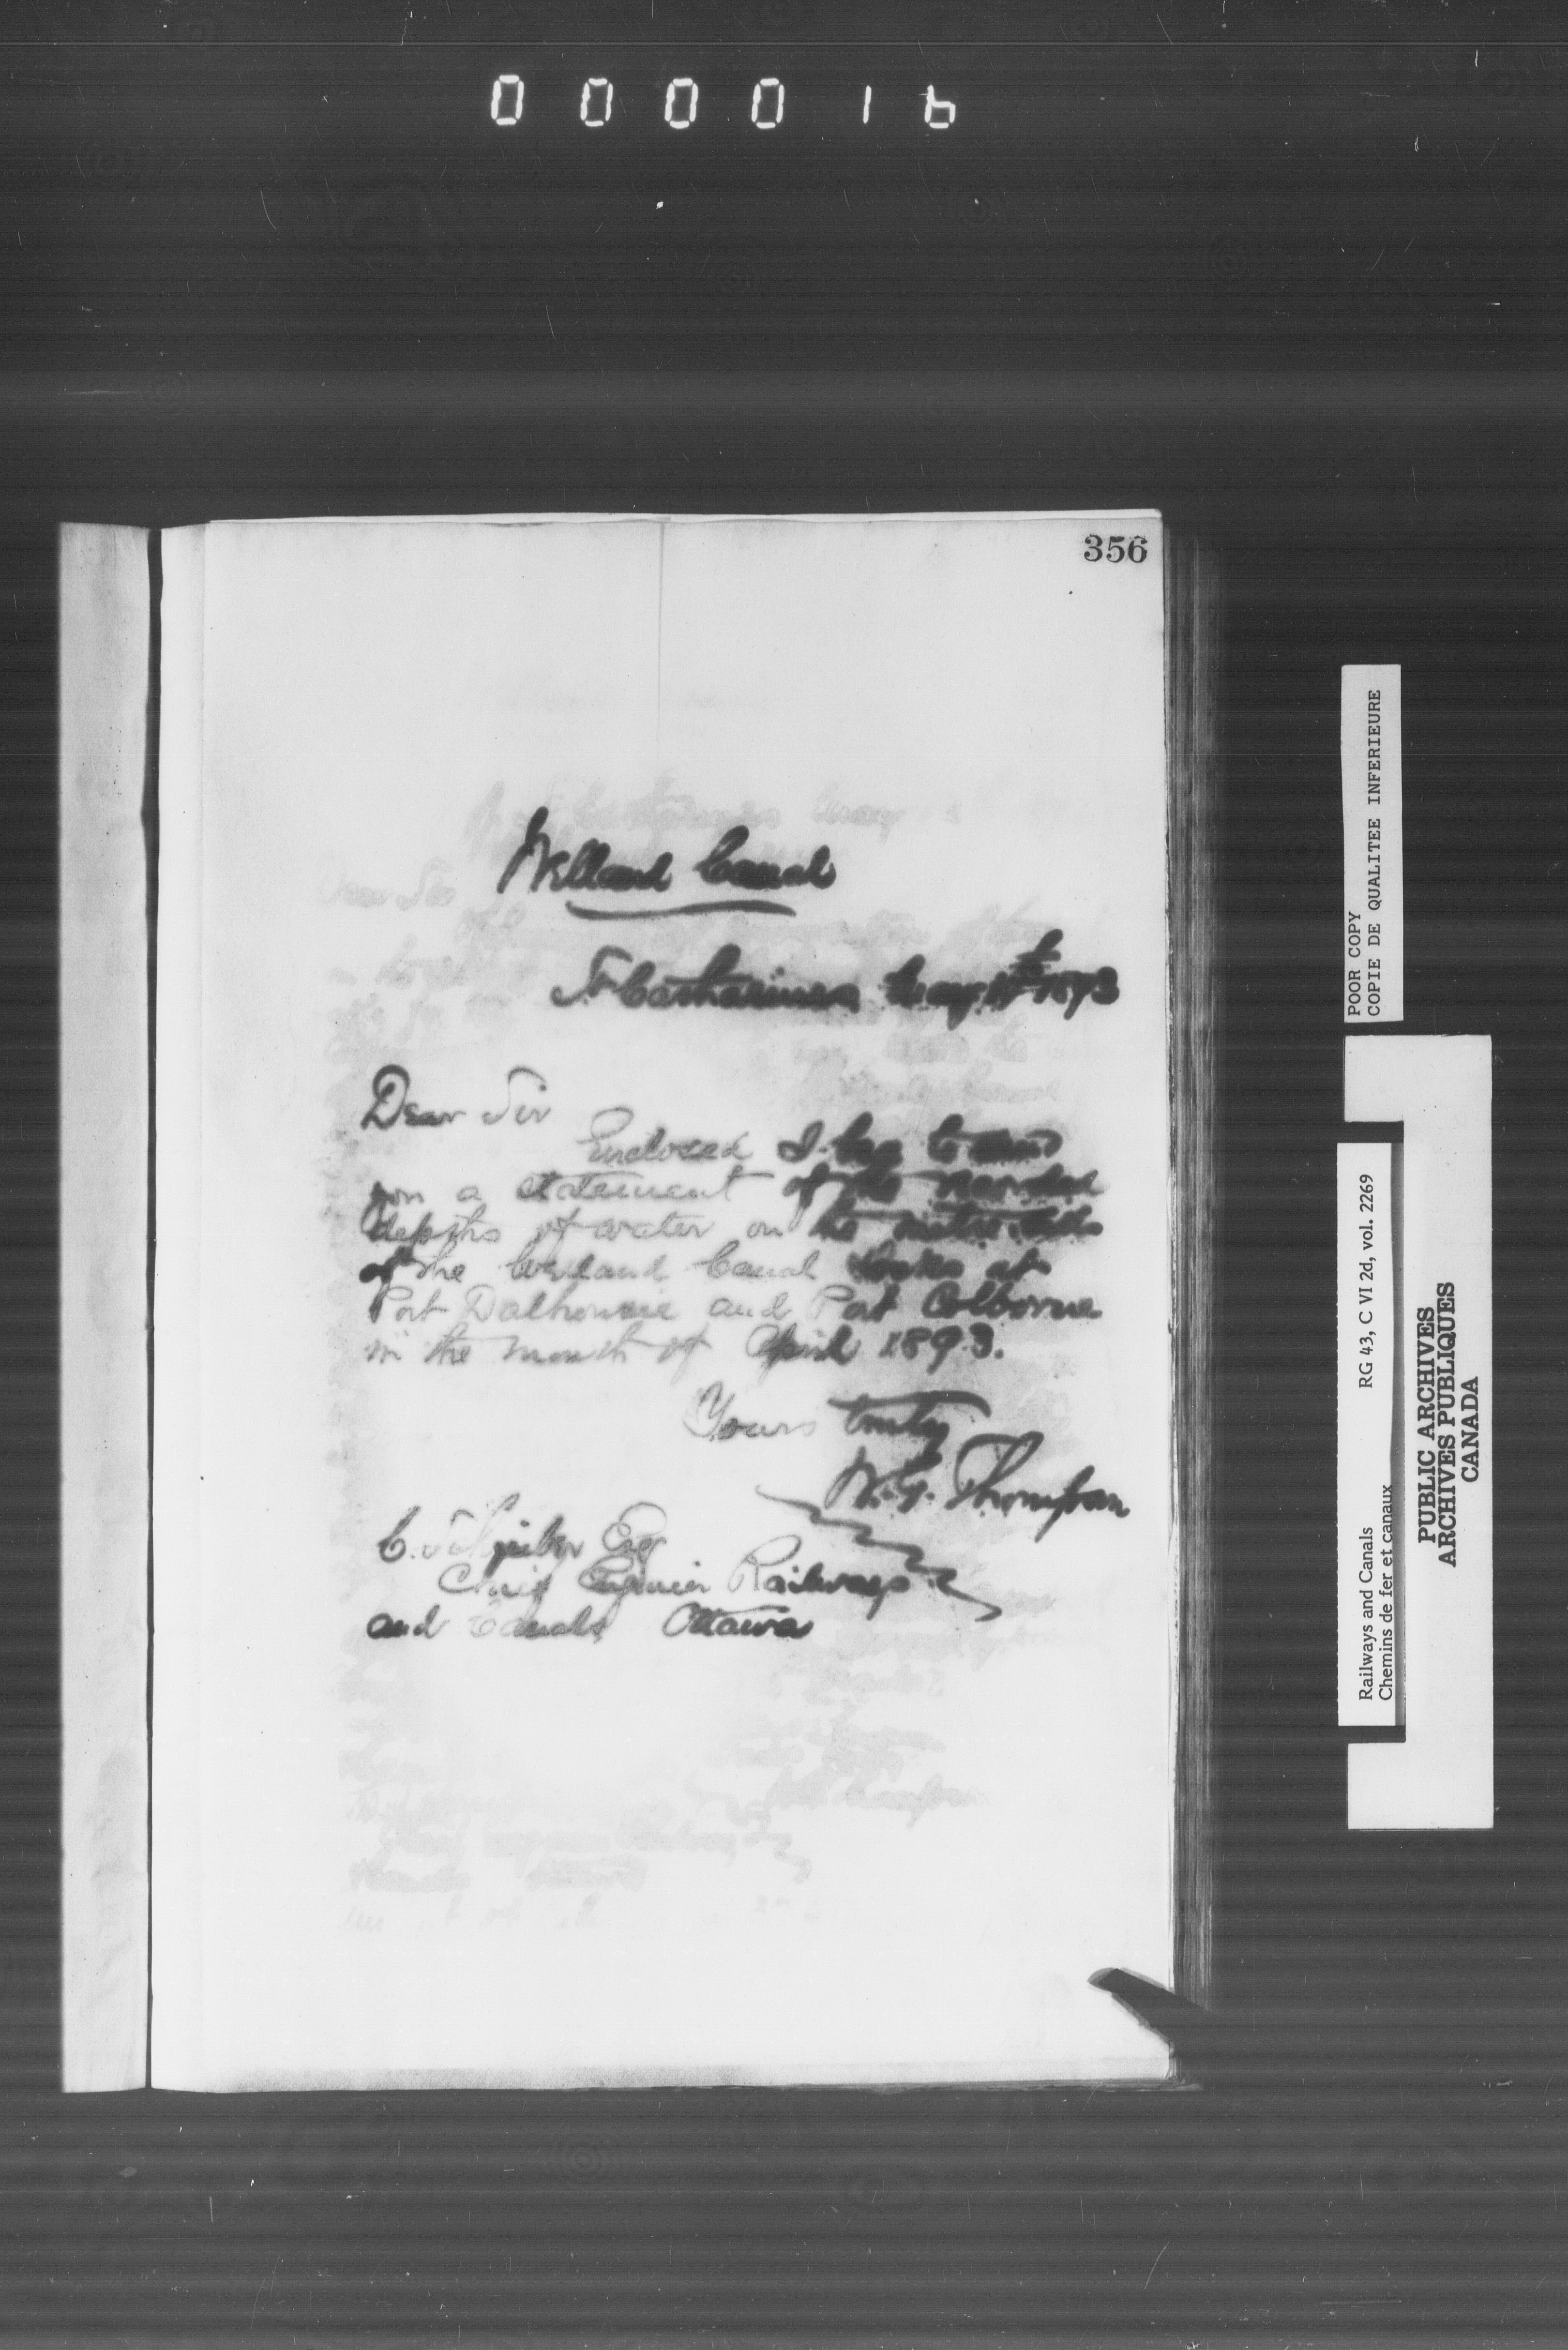 000016
356
Welland Canal
St Catharines May 1893
Dear Sir
Enclosed I beg to send
you a statement of the recorded
depths of water on the mitre sills
of the Welland Canal Locks at
Port Dalhousie and Port Colborne
in the month of April 1893.
Yours truly
W. G. Thompson
C. Schreiber Esq
Chief Engineer Railways
and Canals Ottawa
POOR COPY
COPIE DE QUALITEE INFERIEURE
Railways and Canals RG 43, C VI 2d, vol. 2269
Chemins de fer et canaux
PUBLIC ARCHIVES
ARCHIVES PUBLIQUES
CANADA